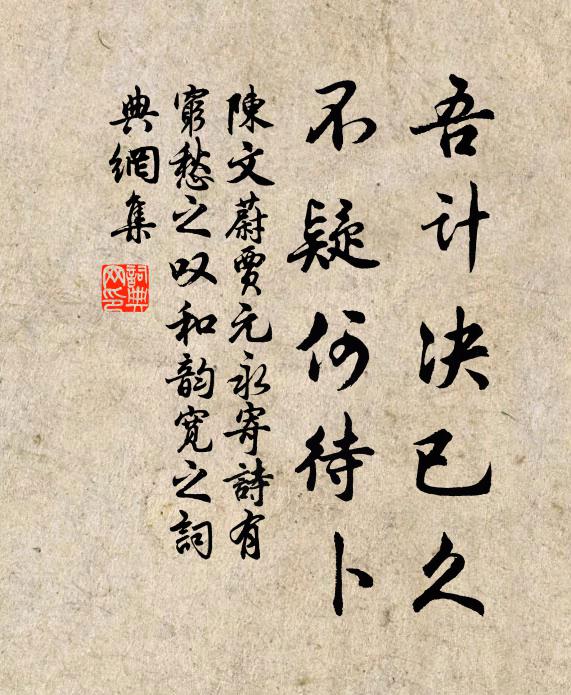 吾计决已久
不疑何待卜
陳文蔚賈元永寄詩有
窮愁之叹和韵寬之詞
典網集
詞典網印